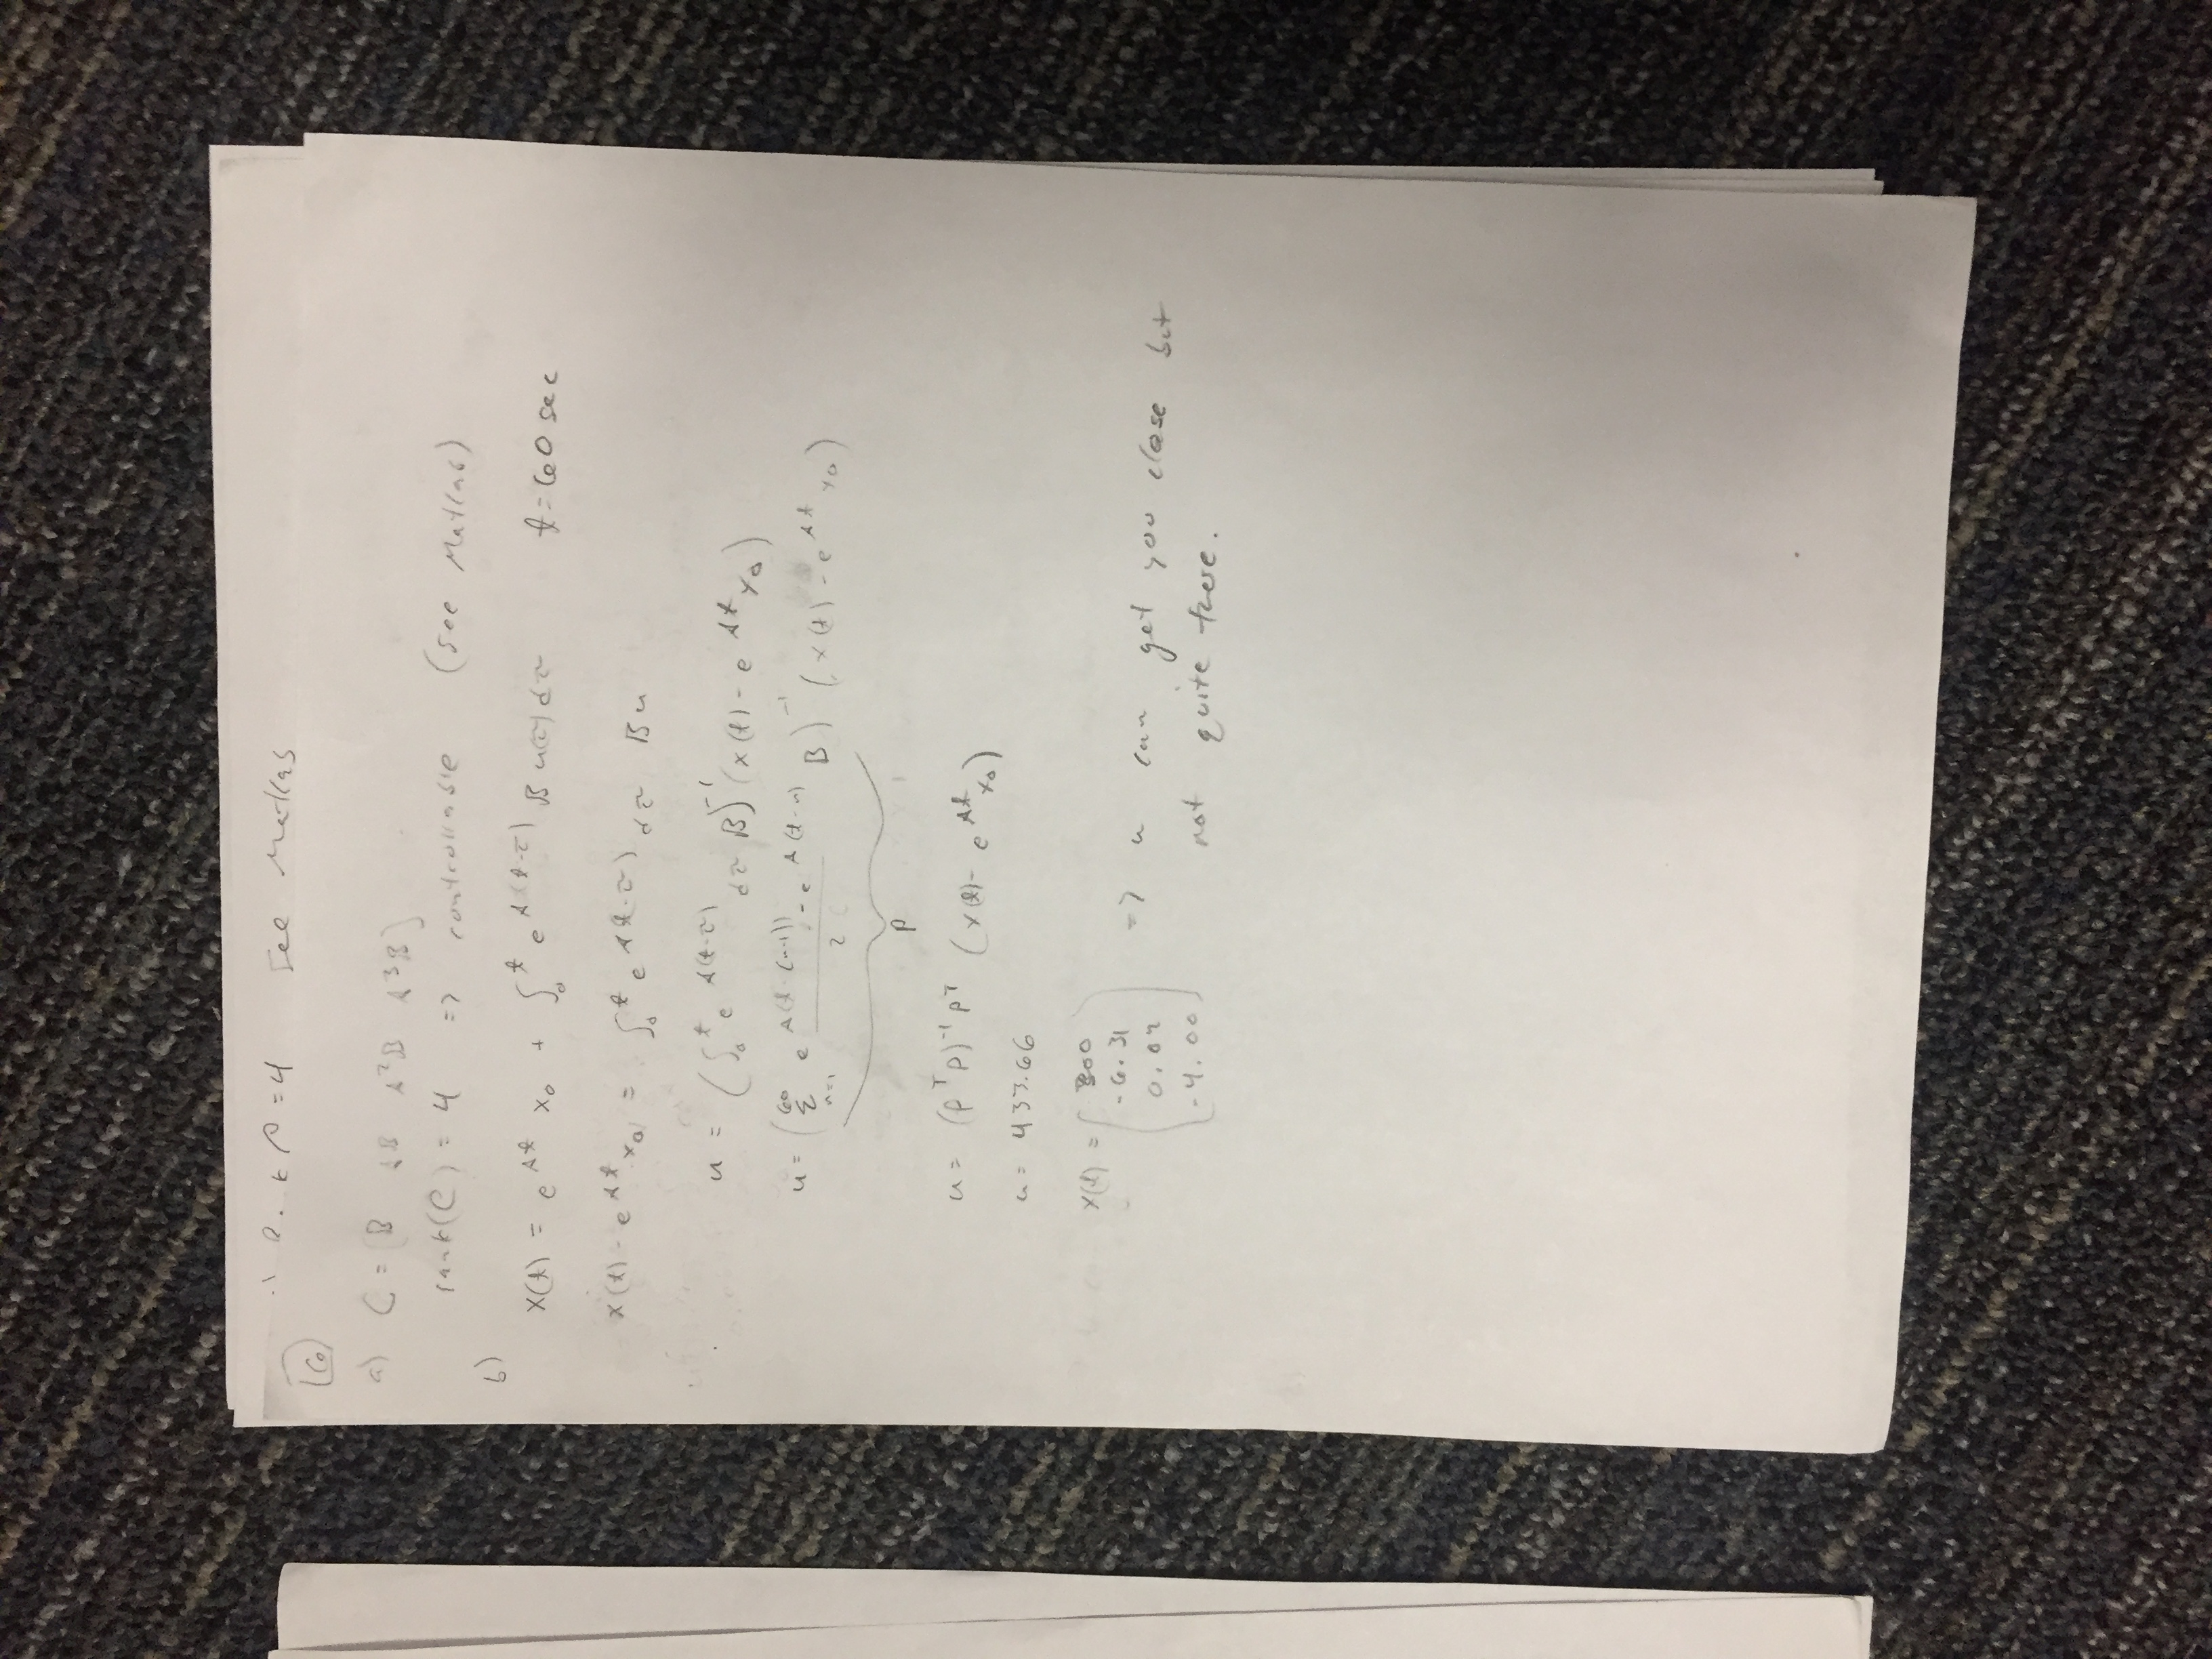 k P = 4 See Matlab
6
a) C = [B AB A²B A³B]
rank(C) = 4 => controllable (see Matlab)
b)
x(t) = e^{At} x₀ + ∫₀^t e^{A(t-τ)} B u(τ) dτ t = 60 sec
x(t) - e^{At} x₀ = ∫₀^t e^{A(t-τ)} dτ B u
u = (∫₀^t e^{A(t-τ)} dτ B)^{-1} (x(t) - e^{At} x₀)
u = (Σ_{n=1}^{60} (e^{A(t-(n-1))} - e^{A(t-n)})/2 B)^{-1} (x(t) - e^{At} x₀)
P
u = (P^T P)^{-1} P^T (x(t) - e^{At} x₀)
u = 433.66
x(t) = [300
-6.31
-4.00] => u can get you close but
not quite there.